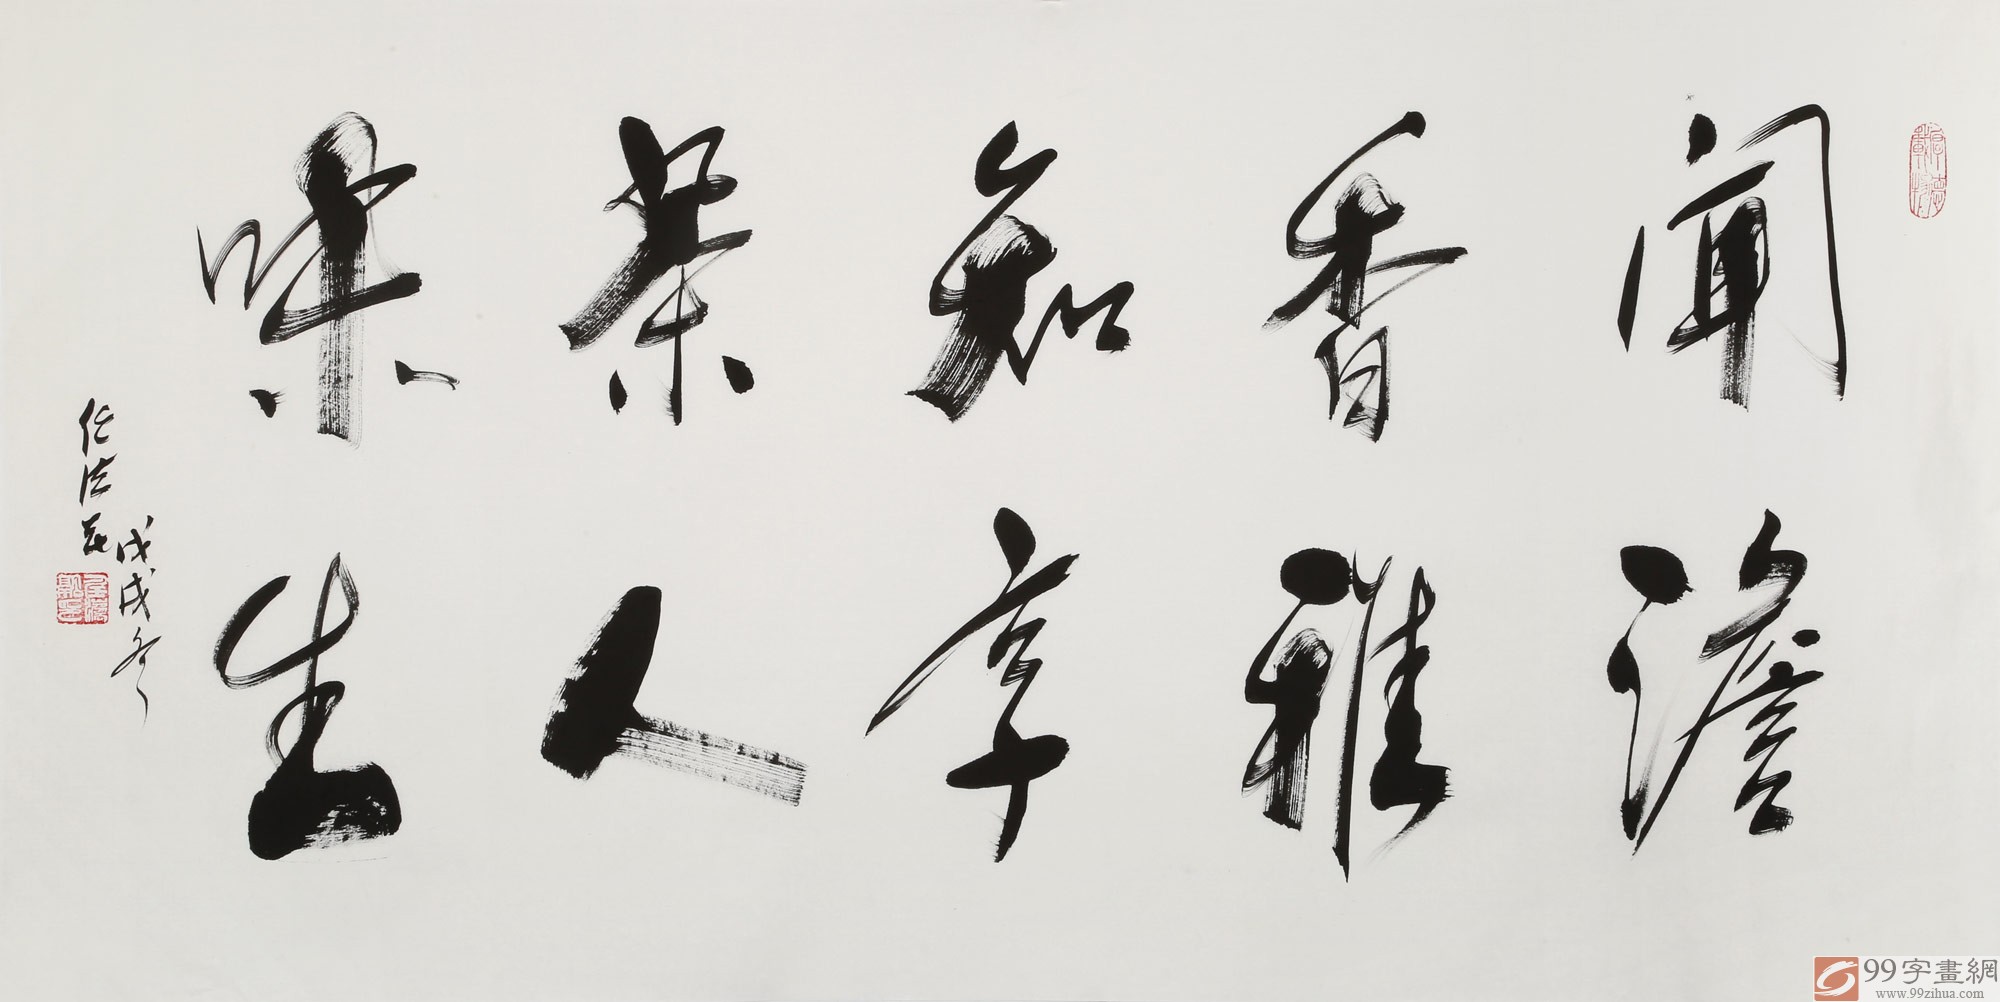 闻香知茶味
澹雅享人生
戊戌冬
任法融
99字畫網
www.99zihua.com